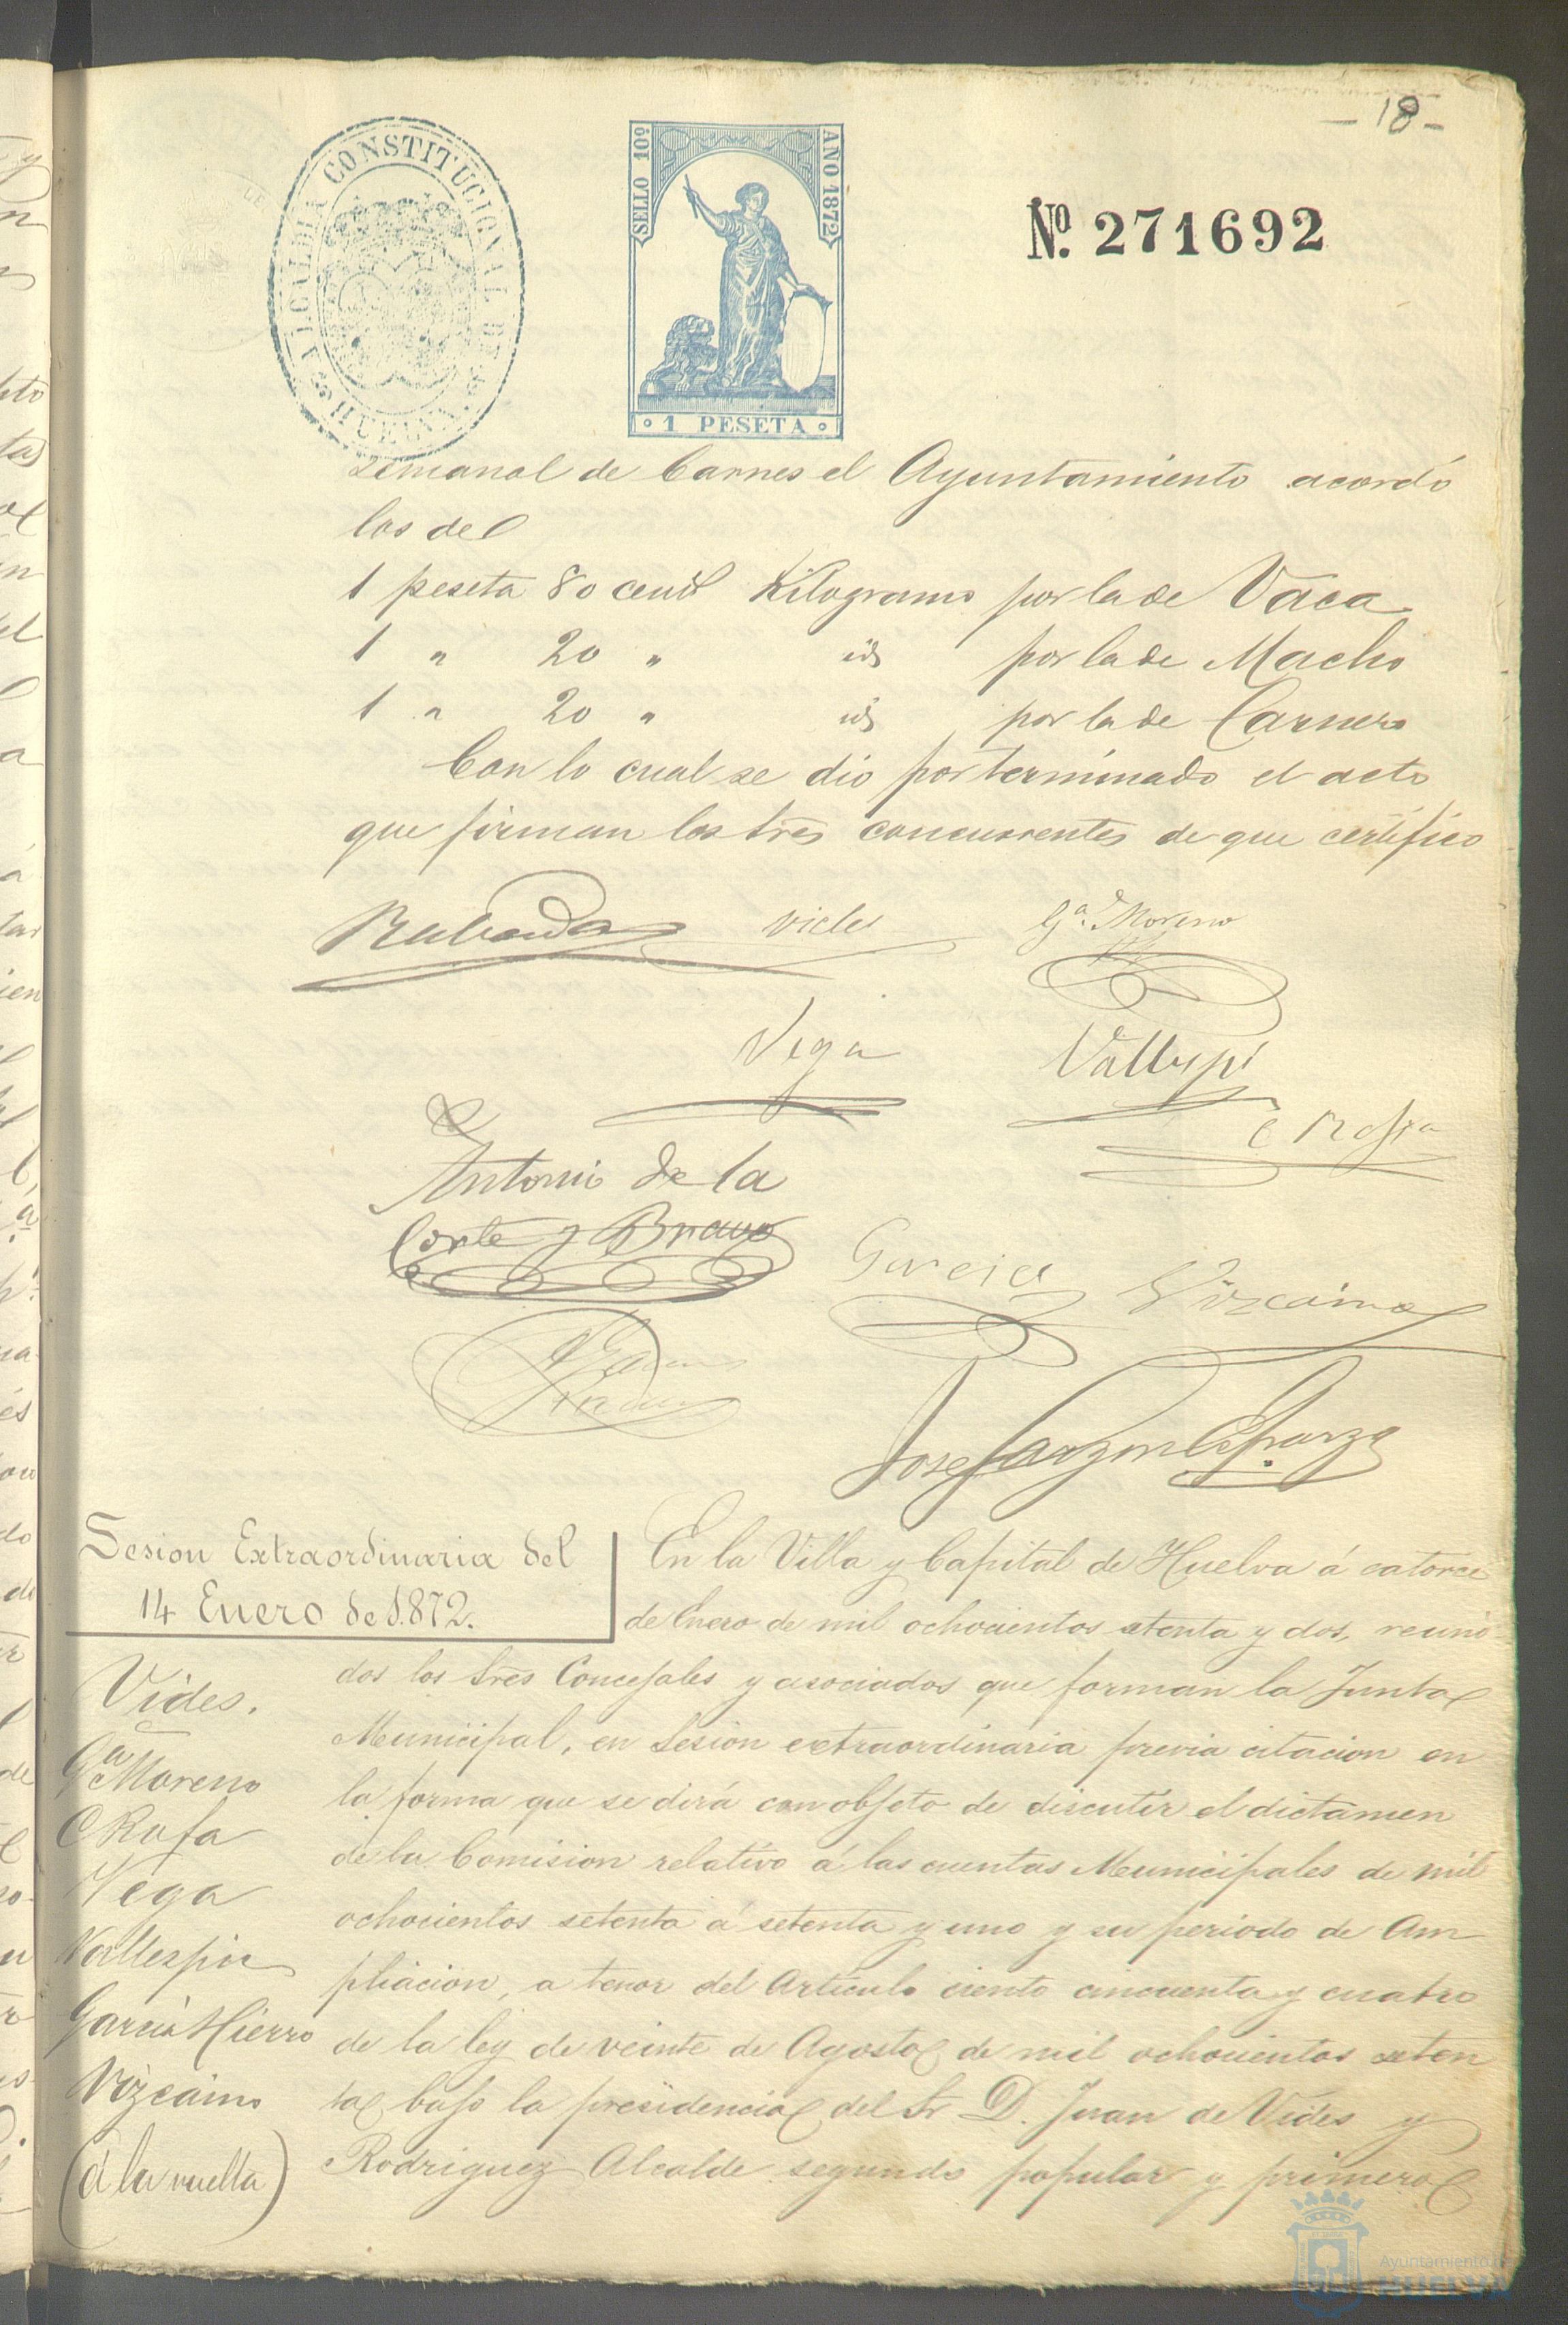 - 18 -
ALCALDIA CONSTITUCIONAL DE HUELVA
SELLO 10º
AÑO 1872
1 PESETA
Nº. 271692
semanal de Carnes el Ayuntamiento acordó
los del
1 peseta 80 cent Kilogramo por la de Vaca
1 " 20 " id por la de Macho
1 " 20 " id por la de Carnero
Con lo cual se dio por terminado el acto
que firman los Sres concurrentes de que certifico
Vides
Gª Moreno
Vega
Vallespi
C Rofa
Antonio de la
Corte y Bravo
Garcia
Vizcaino
Jose Garzon Esparza
Sesion Extraordinaria del
14 Enero de 1.872.
Vides.
Gª Moreno
C Rofa
Vega
Vallespin
Garcia Hierro
Vizcaino
(á la vuelta)
En la Villa y Capital de Huelva á catorce
de Enero de mil ochocientos setenta y dos, reuni
dos los Sres Concejales y asociados que forman la Junta
Municipal, en Sesion extraordinaria previa citacion en
la forma que se dirá con objeto de discutir el dictamen
de la Comision relativo á las cuentas Municipales de mil
ochocientos setenta á setenta y uno y su periodo de Am
pliacion, a tenor del Articulo ciento cincuenta y cuatro
de la ley de veinte de Agosto de mil ochocientos seten
ta bajo la presidencia del Sr D. Juan de Vides y
Rodriguez Alcalde segundo popular y primero
Ayuntamiento de
HUELVA